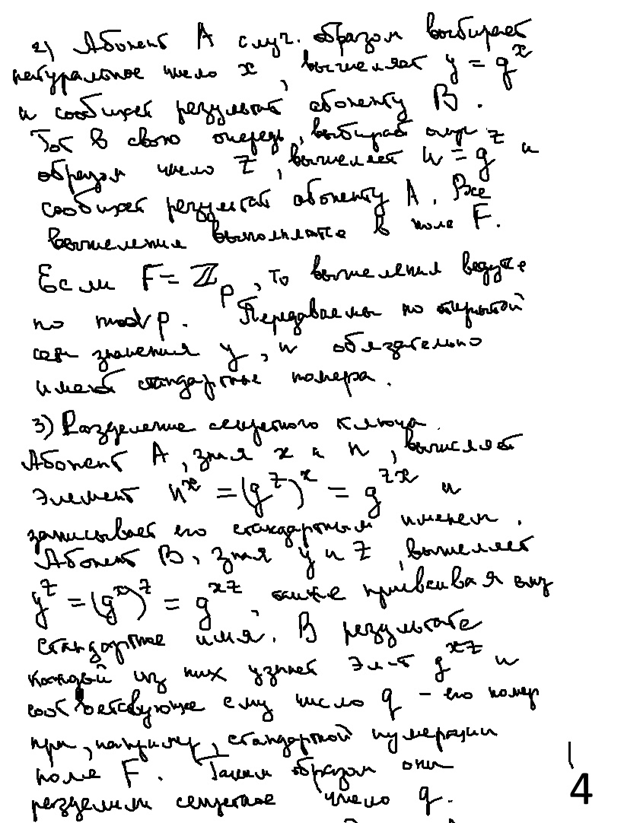 2) Абонент A случ. образом выбирает
натуральное число x, вычисляет y = g^x
и сообщает результат абоненту B.
Тот в свою очередь, выбирает случ
образом число z, вычисляет u = g^z и
сообщает результат абоненту A. Все
вычисления выполняются в поле F.
Если F = ℤ_p, то вычисления ведутся
по mod p. Передаваемые по открытой
сети значения y, u обязательно
имеют стандартные номера.
3) Разделение секретного ключа.
Абонент A, зная x и u, вычисляет
элемент u^x = (g^z)^x = g^{zx} и
записывает его стандартным именем.
Абонент B, зная y и z, вычисляет
y^z = (g^x)^z = g^{xz}, также присваивая ему
стандартное имя. В результате
каждый из них узнает эл-т g^{xz} и
соответствующее ему число q – его номер
при, например, стандартной нумерации
поле F. Таким образом они
разделили секретное число q.
4